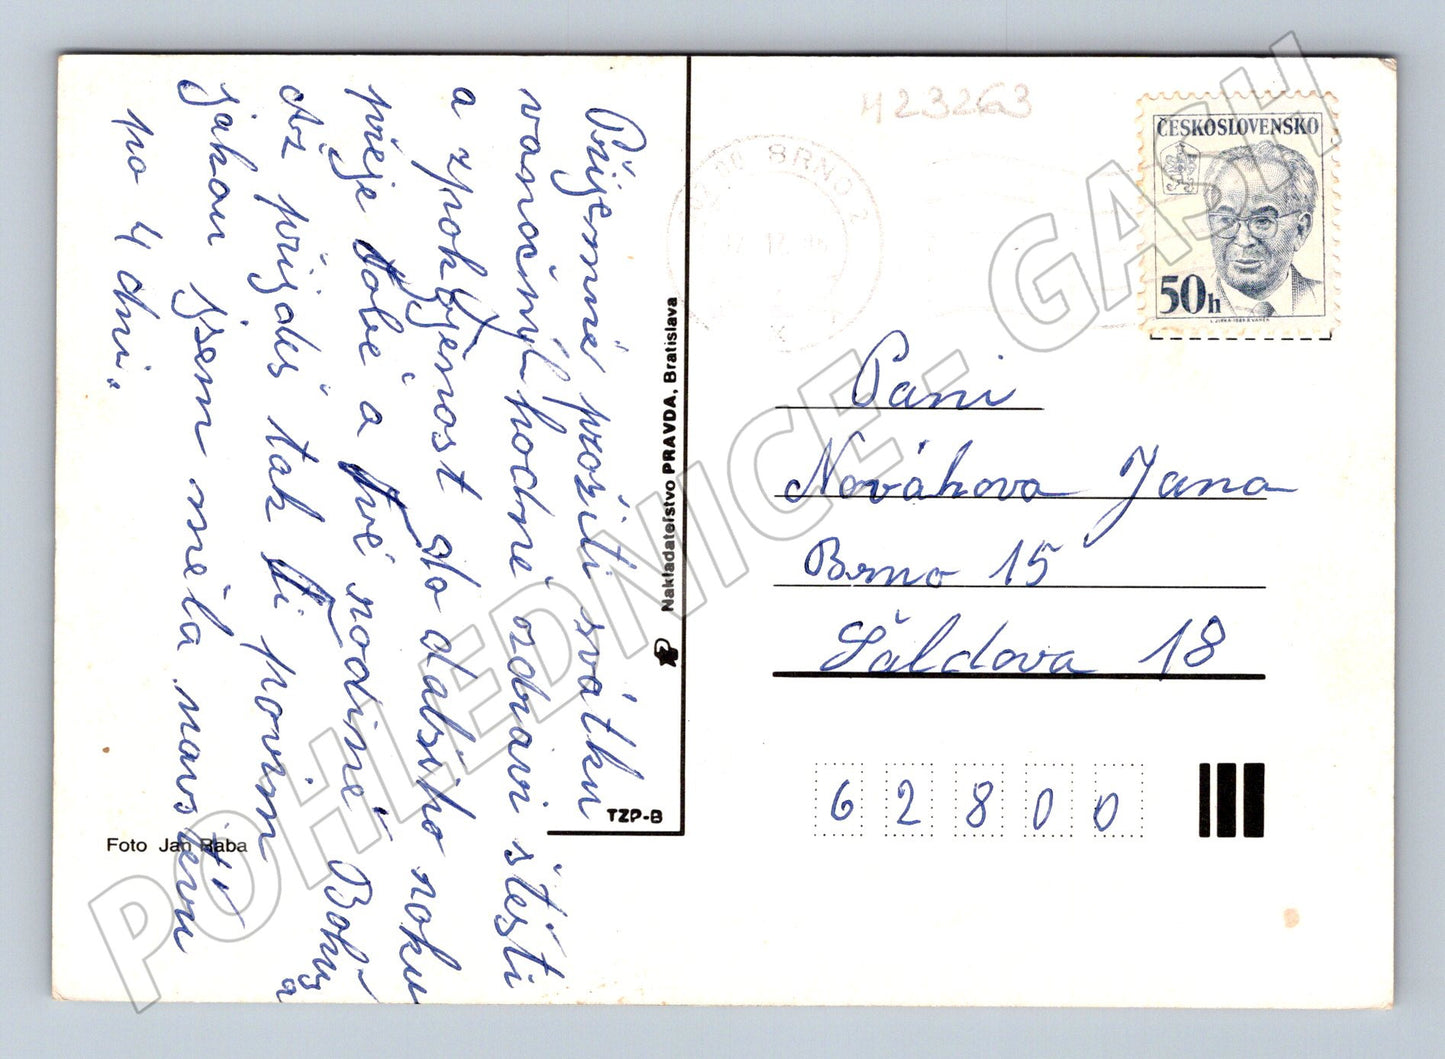 Příjemné prožití svátků
vanočnýh hodně zdraví štěstí
a zpokojenost do dalšího roku
přeje tobě a tvé rodině
Až přijdeš tak ti povim
jakou jsem měla navstevu
po 4 dni.
Foto Jan Raba
Nakladateľstvo PRAVDA, Bratislava
TZP-B
423263
BRNO 2
ČESKOSLOVENSKO
50h
Paní
Nováková Jana
Brno 15
Šaldova 18
62800
POHLEDNICE - GASH